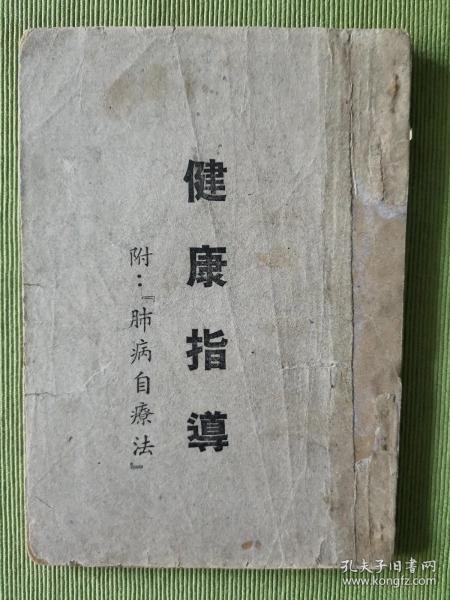 健康指導
附：『肺病自療法』
孔夫子旧书网
www.kongfz.com